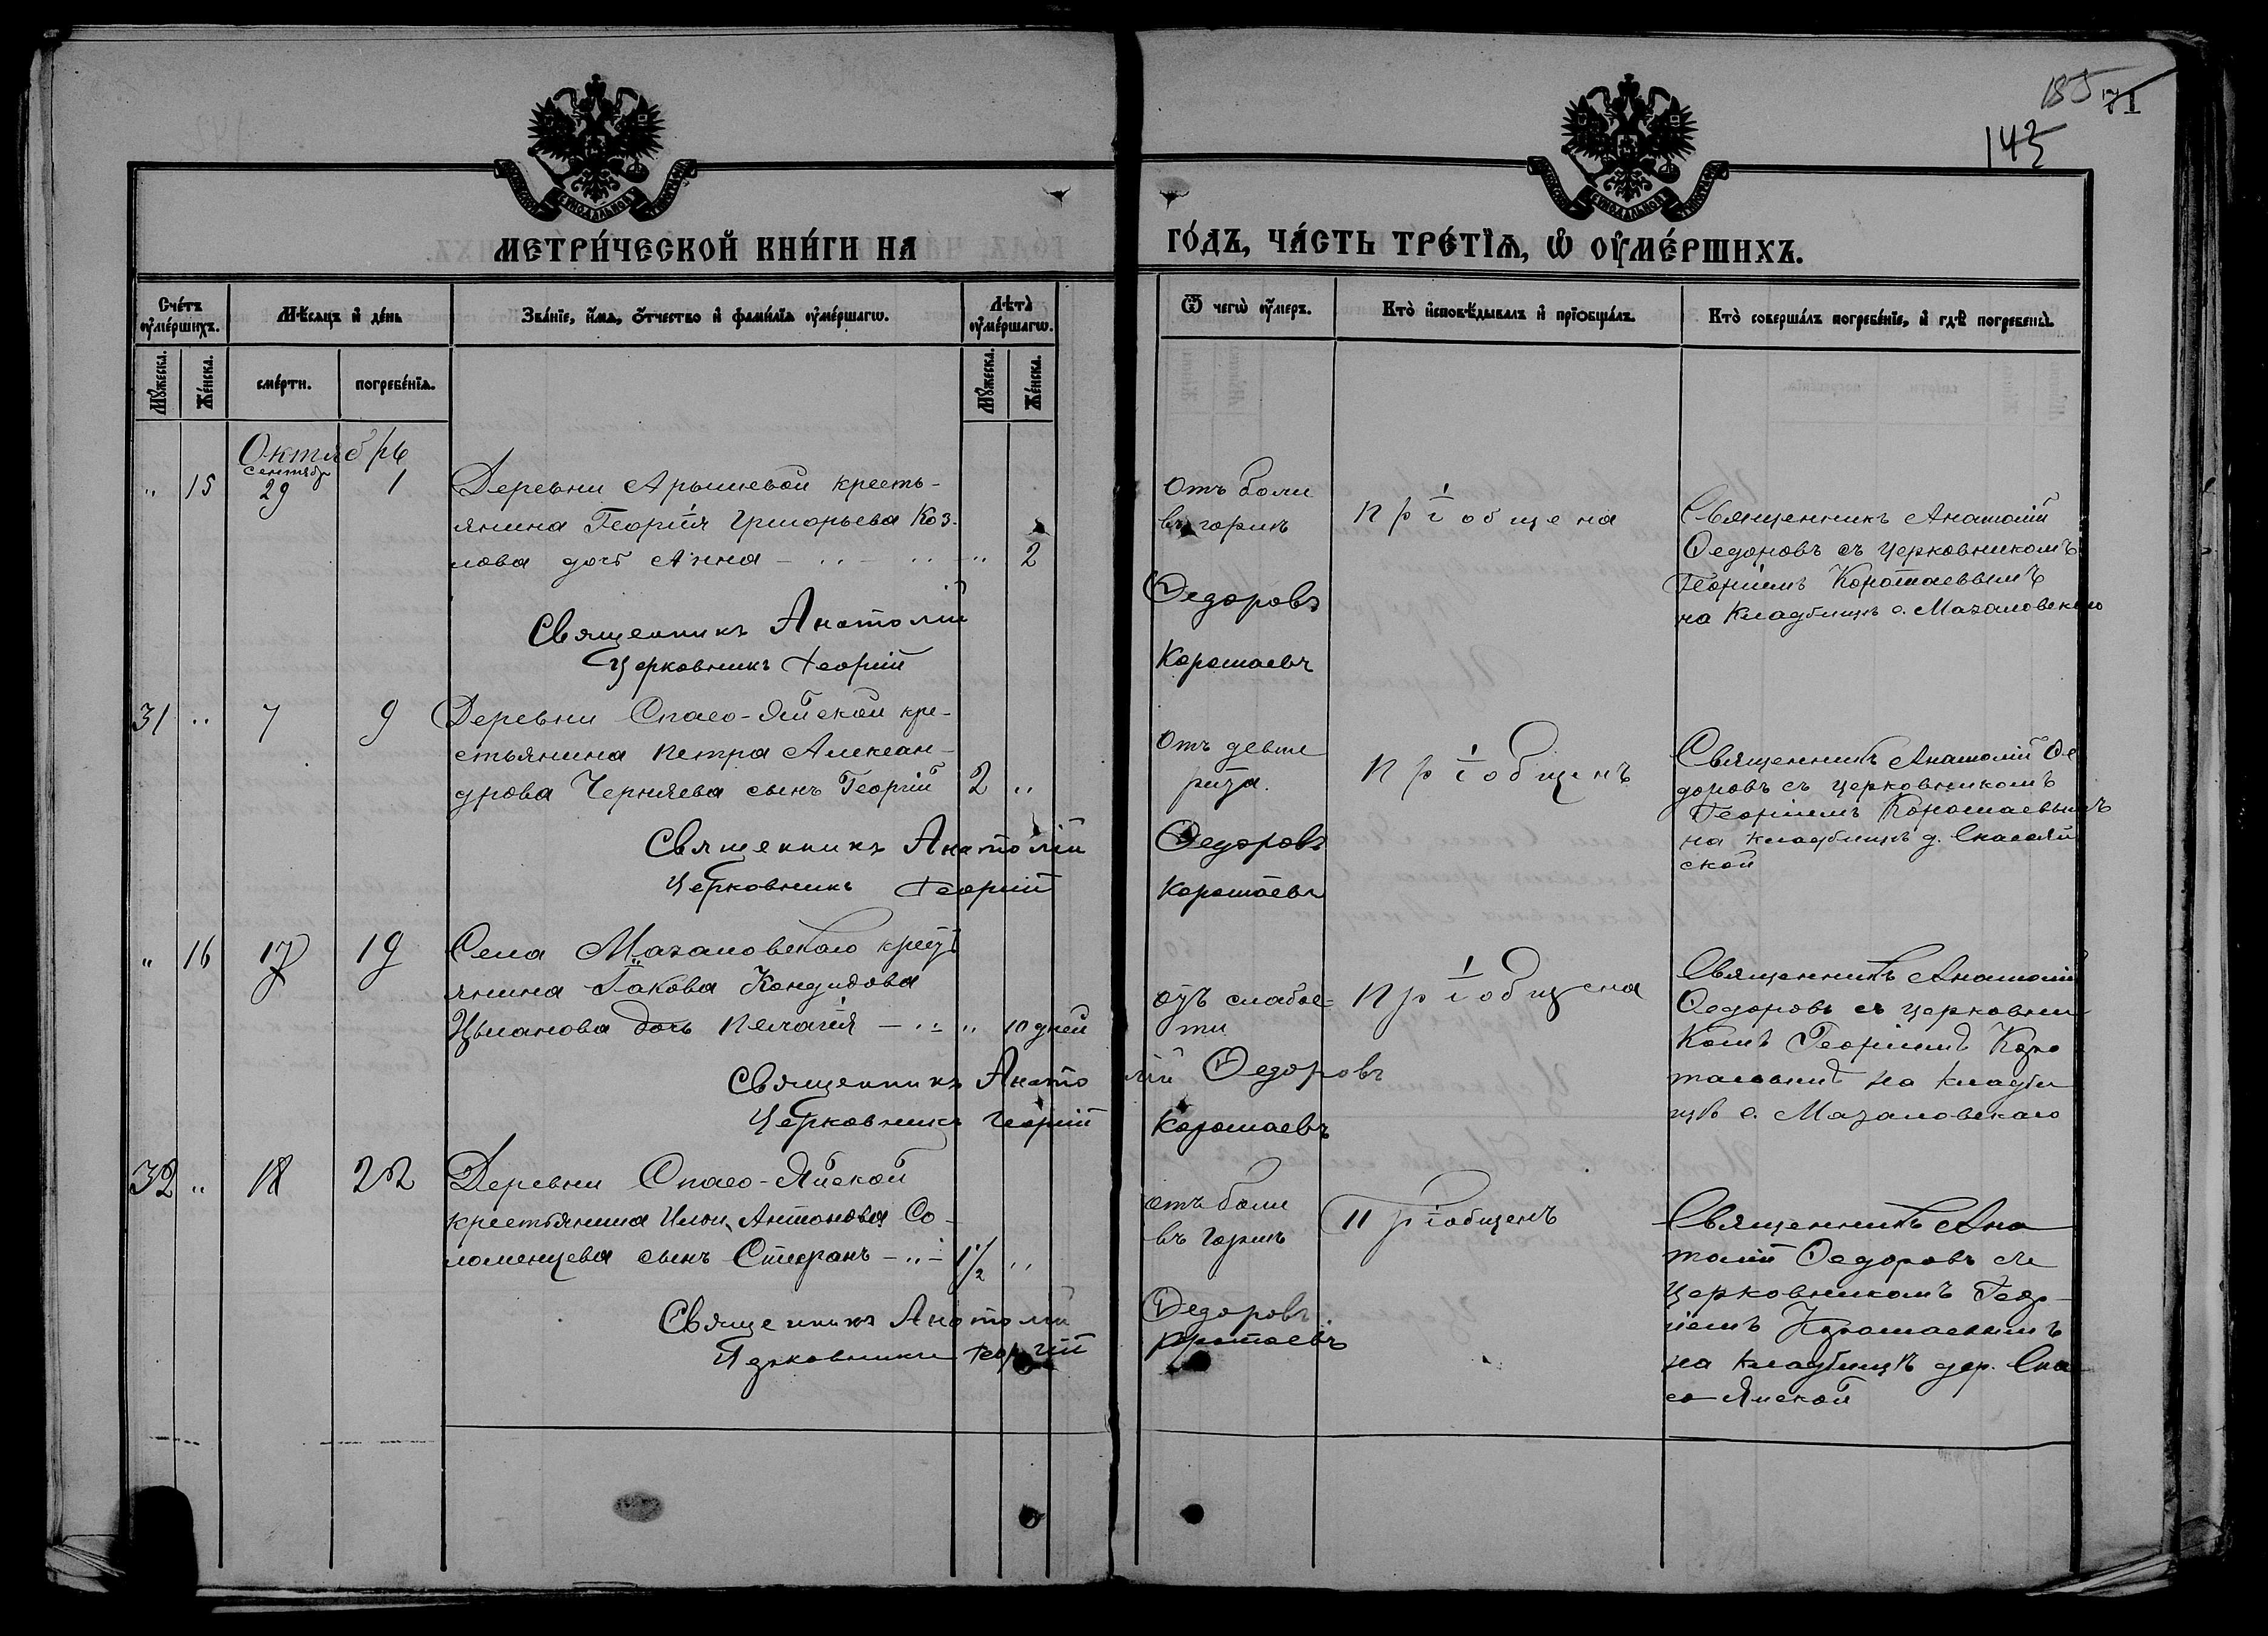 185 71
143
МЕТРИ́ЧЕСКОЙ КНИ́ГИ НА
ГО́ДЪ, ЧА́СТЬ ТРЕ́ТЇѦ, Ѡ҆ ОУ҆МЕ́РШИХЪ.
Сче́тъ оу҆ме́ршихъ.
Мѣ́сяцъ и҆ де́нь
Зва́нїе, и҆́мѧ, ѻ҆́тчество и҆ фами́лїѧ оу҆ме́ршагѡ.
Лѣ́та оу҆ме́ршагѡ.
Ѿ чегѡ̀ оу҆́меръ.
Кто̀ и҆сповѣ́дывалъ и҆ прїѻбща́лъ.
Кто̀ соверша́лъ погребе́нїе, и҆ гдѣ̀ погребены̀.
Мꙋ́жеска.
Же́нска.
сме́рти.
погребе́нїѧ.
Мꙋ́жеска.
Же́нска.
Октябрь
Сентябр
" 15 29 1 Деревни Арышевой кресть-
янина Георгія Григорьева Коз-
лова дочь Анна " 2
отъ боли
въ горлѣ
Пріобщена
Священникъ Анатолій
Ѳедоровъ съ церковникомъ
Георгіемъ Коротаевымъ
на кладбищѣ с. Мазаловскаго
Священникъ Анатолій Ѳедоровъ
Церковникъ Георгій Коротаевъ
31 " 7 9 Деревни Спасо-Яйской кре-
стьянина Петра Алексан-
дрова Черняева сынъ Георгій 2 "
отъ дефте
рита.
Пріобщенъ
Священникъ Анатолій Ѳе
доровъ съ церковникомъ
Георгіемъ Коротаевымъ
на кладбищѣ д. Спасояй
ской
Священникъ Анатолій Ѳедоровъ
Церковникъ Георгій Коротаевъ
" 16 17 19 Села Мазаловскаго крест
янина Іакова Кондидова
Цыганова дочь Пелагія " 10 дней
отъ слабос-
ти
Пріобщена
Священникъ Анатолій
Ѳедоровъ съ церковни-
комъ Георгіемъ Коро
таевымъ на кладби
щѣ с. Мазаловскаго
Священникъ Анатолій Ѳедоровъ
Церковникъ Георгій Коротаевъ
32 " 18 22 Деревни Спасо-Яйской
крестьянина Ильи Антонова Со-
ломенцева сынъ Стефанъ 1 1/2 "
отъ боли
въ горлѣ
Пріобщенъ
Священникъ Ана
толій Ѳедоровъ съ
церковникомъ Геор-
гіемъ Коротаевымъ
на кладбищѣ дер. Спа
со Яйской
Священникъ Анатолій Ѳедоровъ
Церковникъ Георгій Коротаевъ